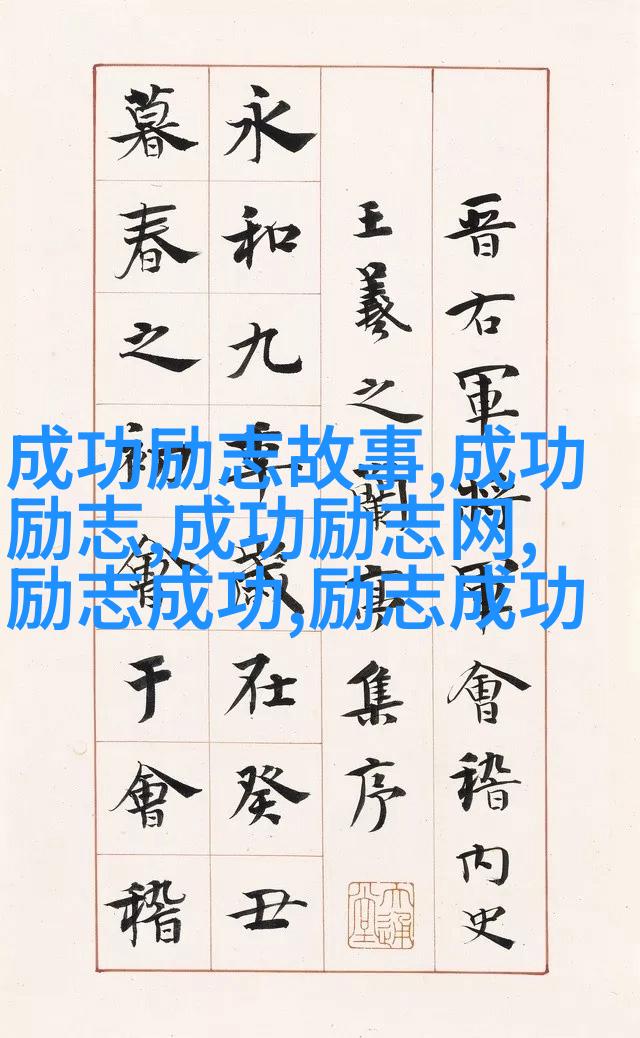 晋右軍將軍會稽内史
王羲之蘭亭集序
永和九年歲在癸丑
暮春之初會于會稽
成功励志故事,成功
励志,成功励志网,
励志成功,励志成功